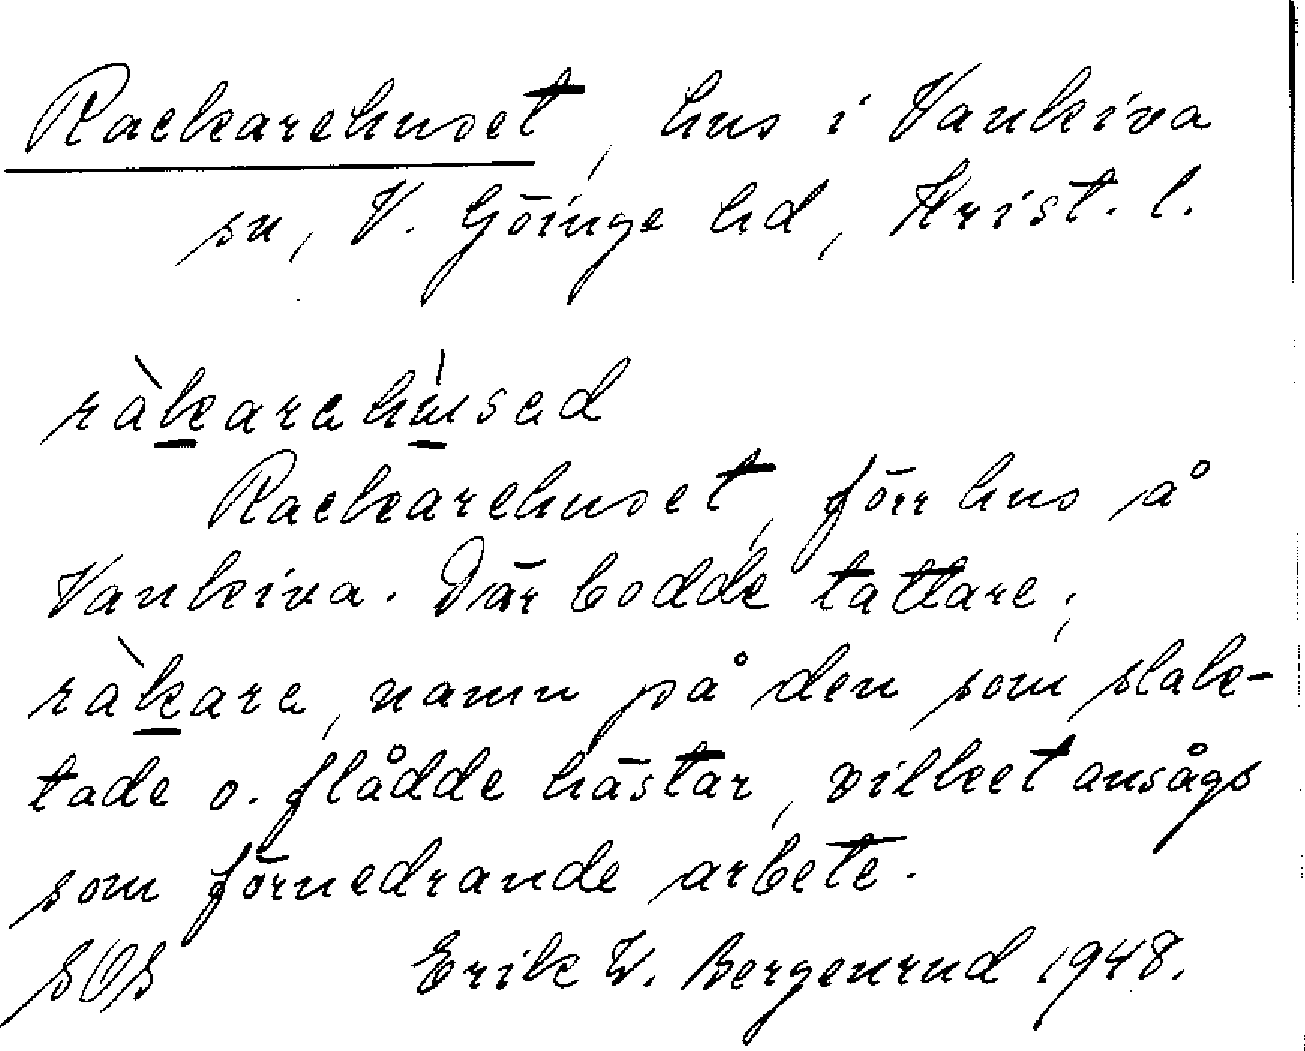 Rackarehuset, hus i Vankiva
sn, V. Göinge hd, Krist. l.
ràkarahúsad
Rackarehuset, förr hus å
Vankiva. Där bodde tattare;
ràkara, namn på den som slak-
tade o. flådde hästar, vilket ansågs
som förnedrande arbete.
SOS Erik W. Bergenrud 1948.